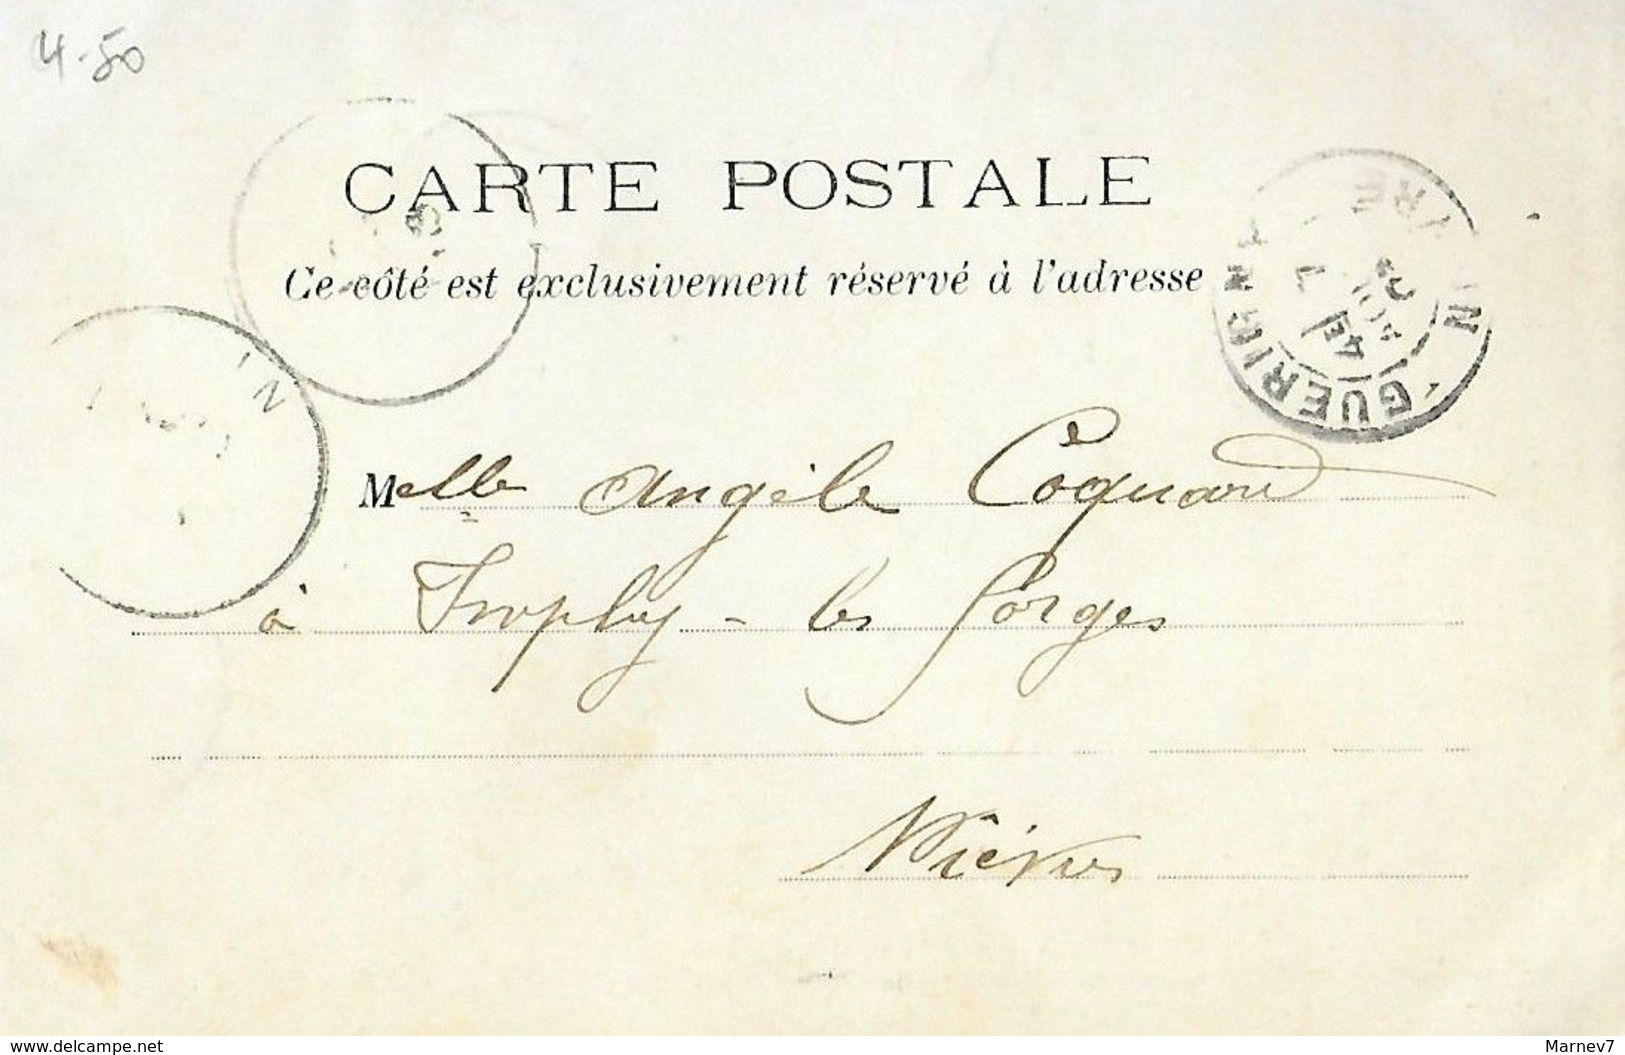 4.50
CARTE POSTALE
Ce côté est exclusivement réservé à l'adresse
GUERIGN
IN
Melle Angèle Coquard
à Trophy - les Forges
Nièvre
www.delcampe.net
Marnev7